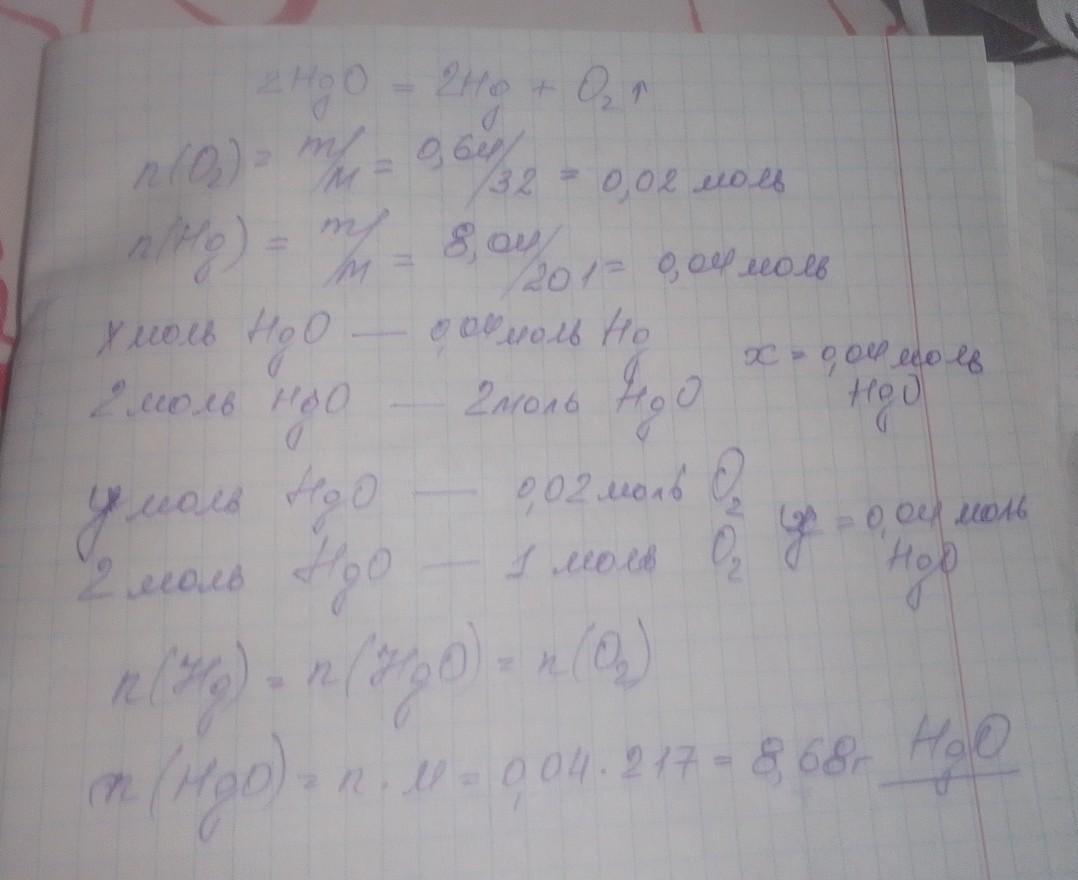 2HgO = 2Hg + O₂↑
n(O₂) = m/M = 0,64/32 = 0,02 моль
n(Hg) = m/M = 8,04/201 = 0,04 моль
x моль HgO — 0,04 моль Hg
x = 0,04 моль
2 моль HgO — 2 моль HgO
HgO
y моль HgO — 0,02 моль O₂
y = 0,04 моль
2 моль HgO — 1 моль O₂
HgO
n(Hg) = n(HgO) = n(O₂)
m(HgO) = n · M = 0,04 · 217 = 8,68г HgO